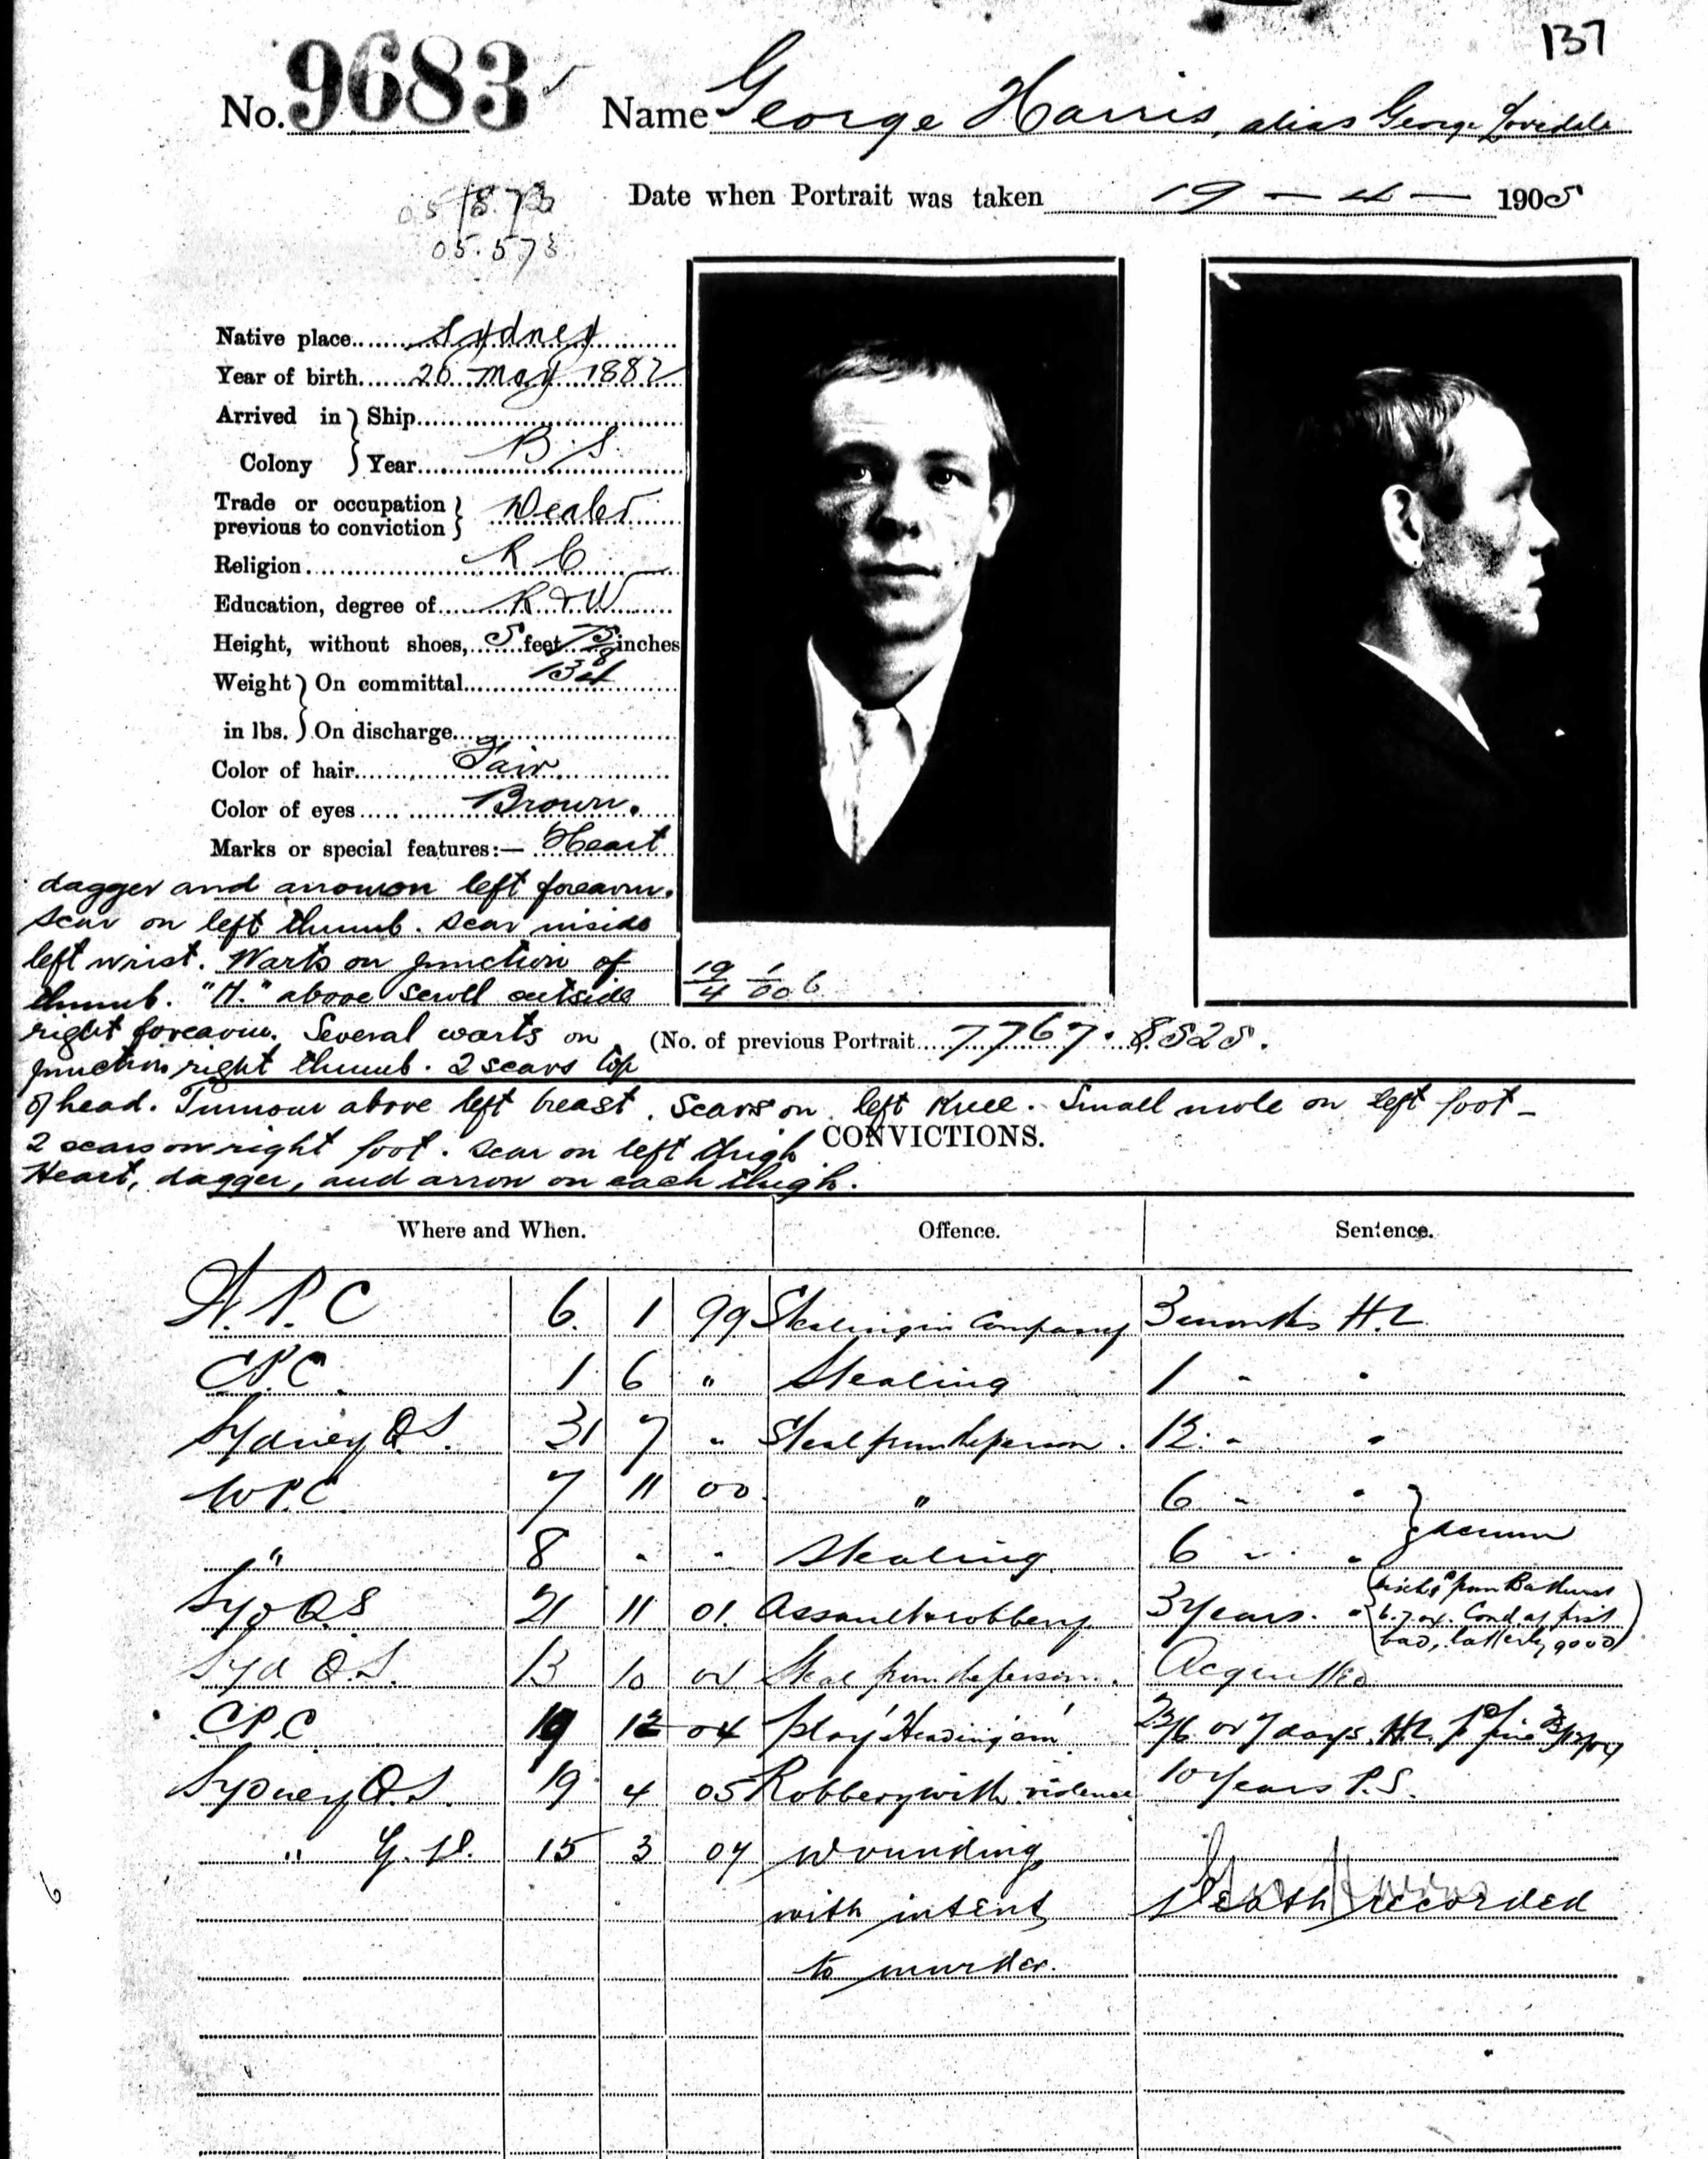 137
No. 9683 Name George Harris, alias George
Date when Portrait was taken 19 – 4 – 1905
05.573
Native place Sydney
Year of birth 26 May 1882
Arrived in Colony } Ship
Year B.S.
Trade or occupation previous to conviction } Dealer
Religion R C
Education, degree of R & W
Height, without shoes, 5 feet 7 5/8 inches
Weight in lbs. } On committal 134
On discharge
Color of hair Fair.
Color of eyes Brown.
Marks or special features:— Heart
dagger and arrow on left forearm.
scar on left thumb. scar inside
left wrist. Warts on junction of
thumb. "H." above scroll outside
right forearm. Several warts on
junction right thumb. 2 scars top
of head. Tumour above left breast. Scars on left Knee. Small mole on left foot –
2 scars on right foot. scar on left thigh
Heart, dagger, and arrow on each thigh.
19/4 1/00 6
(No. of previous Portrait 7767. 8525.
CONVICTIONS.
Where and When. Offence. Sentence.
P. C 6. 1 99 Stealing in Company 3 months H.L
C.P.C. 1 6 " Stealing 1 " "
Sydney Q S. 31 7 " Steal from the person. 12 " "
W P.C 7 11 00 " 6 " "
" 8 " " Stealing 6 " " } accum
Syd Q S 21 11 01. Assault & robbery 3 years. " (disch'd from Bathurst
6.7.04. Cond. at first
bad, latterly good)
Syd Q.S. 13 10 04 Steal from the person. Acquitted
C.P.C. 19 12 04 play 'Heading 'em' 23/6 or 7 days H.L. fine
Sydney Q.S. 19 4 05 Robbery with violence 10 years P.S.
" G. D. 15 3 07 wounding
with intent Death recorded
to murder.
6